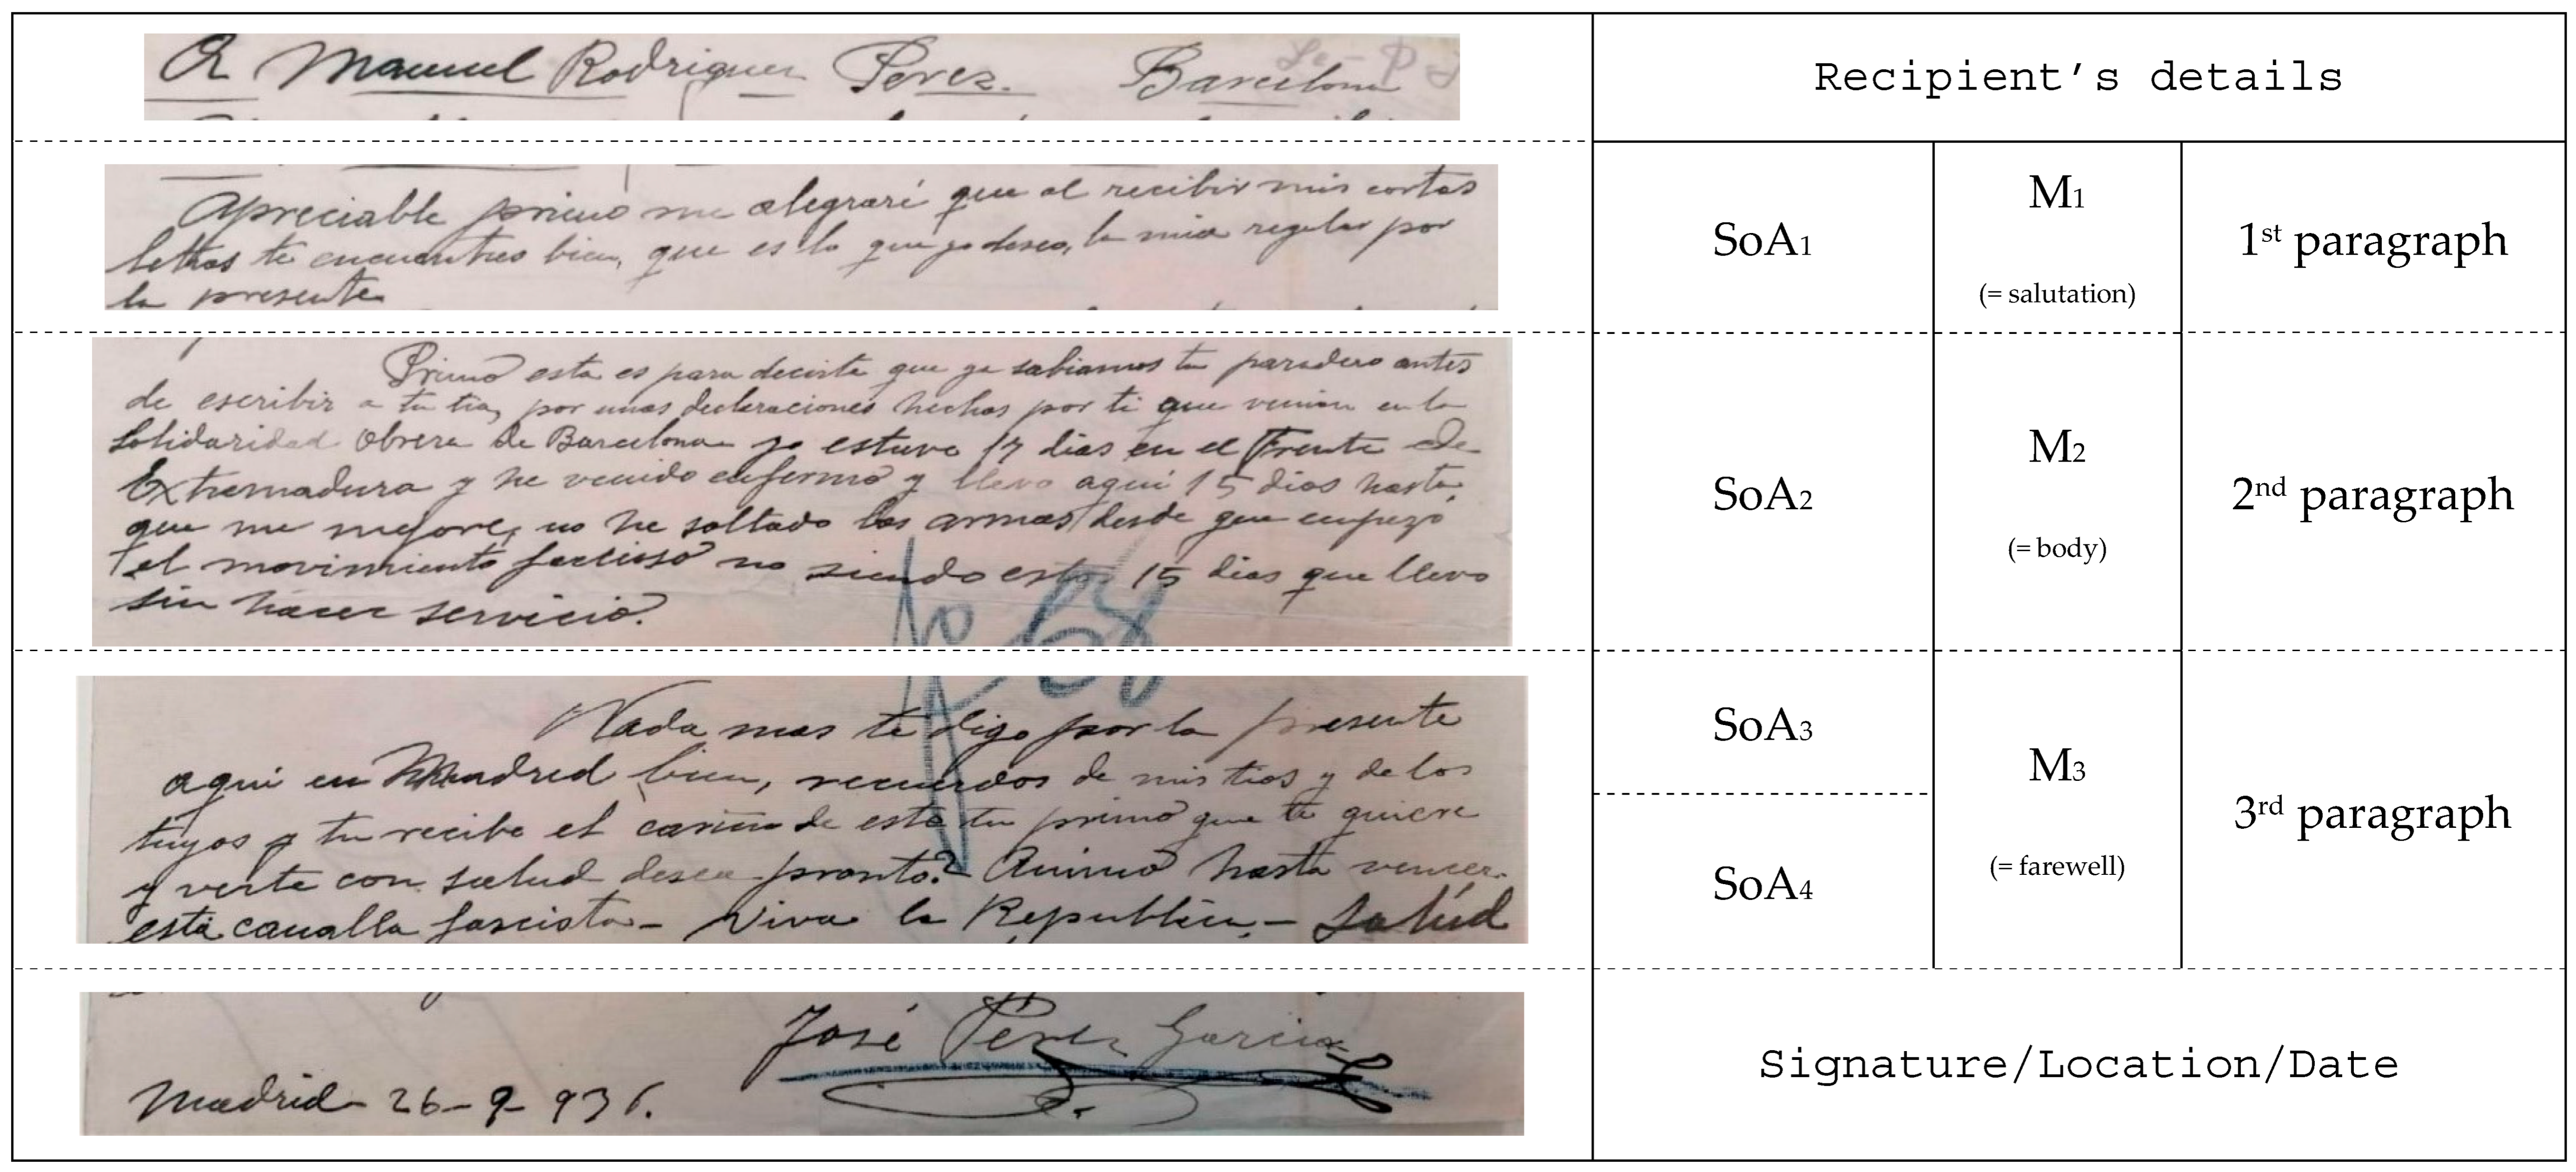 A Manuel Rodriguez Perez. Barcelona
Recipient's details
Apreciable primo me alegraré que al recibir mis cortas
letras te encuentres bien, que es lo que yo deseo, la mia regular por
la presente
SoA1
M1
(= salutation)
1st paragraph
Primo esta es para decirte que ya sabiamos tu paradero antes
de escribir a tu tia, por unas declaraciones hechas por ti que venian en la
Solidaridad Obrera de Barcelona yo estuve 17 dias en el Frente de
Extremadura y he venido enfermo y llevo aqui 15 dias hasta
que me mejore, no he soltado las armas desde que empezó
el movimiento faccioso no siendo estos 15 dias que llevo
sin hacer servicio.
Nº 68
SoA2
M2
(= body)
2nd paragraph
Nada mas te digo por la presente
aqui en Madrid bien, recuerdos de mis tios y de los
tuyos y tu recibe el cariño de este tu primo que te quiere
y verte con salud desea pronto? Animo hasta vencer
esta canalla fascista - Viva la Republica - Salud
SoA3
SoA4
M3
(= farewell)
3rd paragraph
José Perez Garcia
Madrid 26-9-936.
Signature/Location/Date